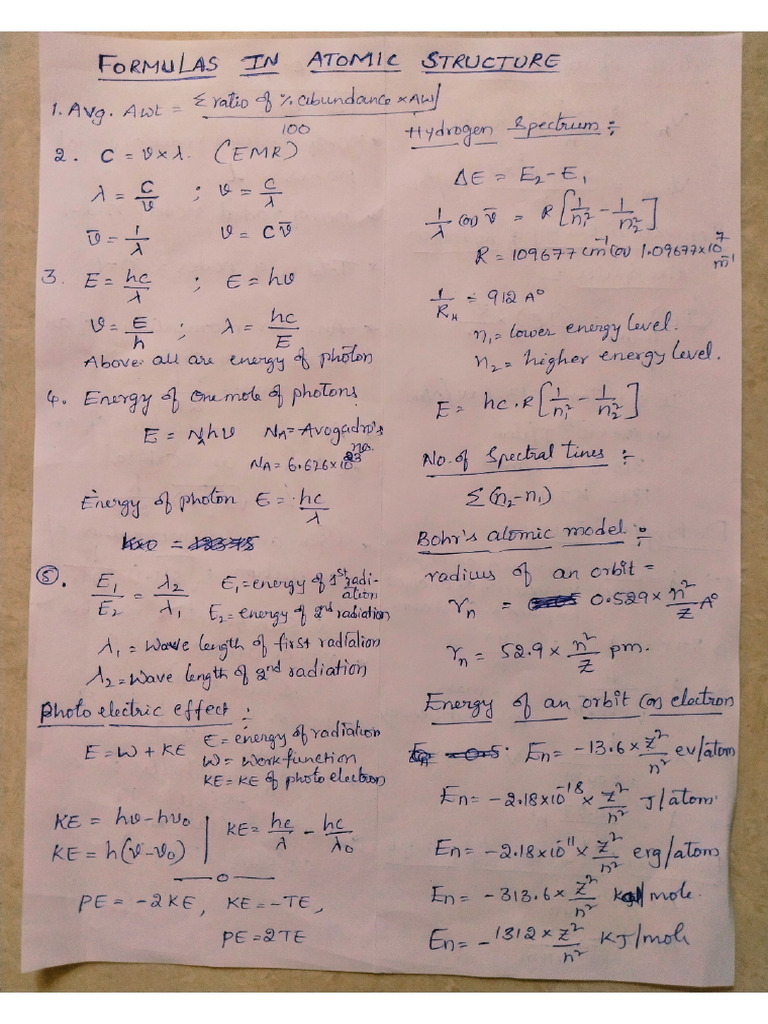 FORMULAS IN ATOMIC STRUCTURE
1. Avg. Awt = Σ ratio of % abundance × Aw / 100
2. C = ν × λ. (EMR)
λ = C/ν ; ν = C/λ
ν̄ = 1/λ ν = Cν̄
3. E = hc/λ ; E = hν
ν = E/h ; λ = hc/E
Above all are energy of photon
4. Energy of one mole of photons
E = NAhν NA = Avogadro's no.
NA = 6.626×10^23
Energy of photon E = hc/λ
5. E1/E2 = λ2/λ1 E1 = energy of 1st radiation
E2 = energy of 2nd radiation
λ1 = Wave length of first radiation
λ2 = Wave length of 2nd radiation
Photo electric effect :
E = W + KE E = energy of radiation
W = Work function
KE = KE of photo electron
KE = hν - hν0 | KE = hc/λ - hc/λ0
KE = h(ν - ν0)
PE = -2KE, KE = -TE,
PE = 2TE
Hydrogen Spectrum :
ΔE = E2 - E1
1/λ (or) ν̄ = R[1/n1² - 1/n2²]
R = 109677 cm^-1 (or) 1.09677×10^7 m^-1
1/RH = 912 A°
n1 = lower energy level.
n2 = higher energy level.
E = hc.R[1/n1² - 1/n2²]
No. of Spectral lines :
Σ(n2 - n1)
Bohr's atomic model :
radius of an orbit =
rn = 0.529 × n²/Z A°
rn = 52.9 × n²/Z pm.
Energy of an orbit (or) electron
En = -13.6 × Z²/n² ev/atom
En = -2.18×10^-18 × Z²/n² J/atom
En = -2.18×10^-11 × Z²/n² erg/atom
En = -313.6 × Z²/n² /mole.
En = -1312 × Z²/n² KJ/mole